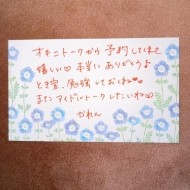 オキニトークから予約してくれて
嬉しい♡ 本当に ありがとうよ
とき宮、勉強しておくね♡♡
またアイドルトークしたいね♡
かれん